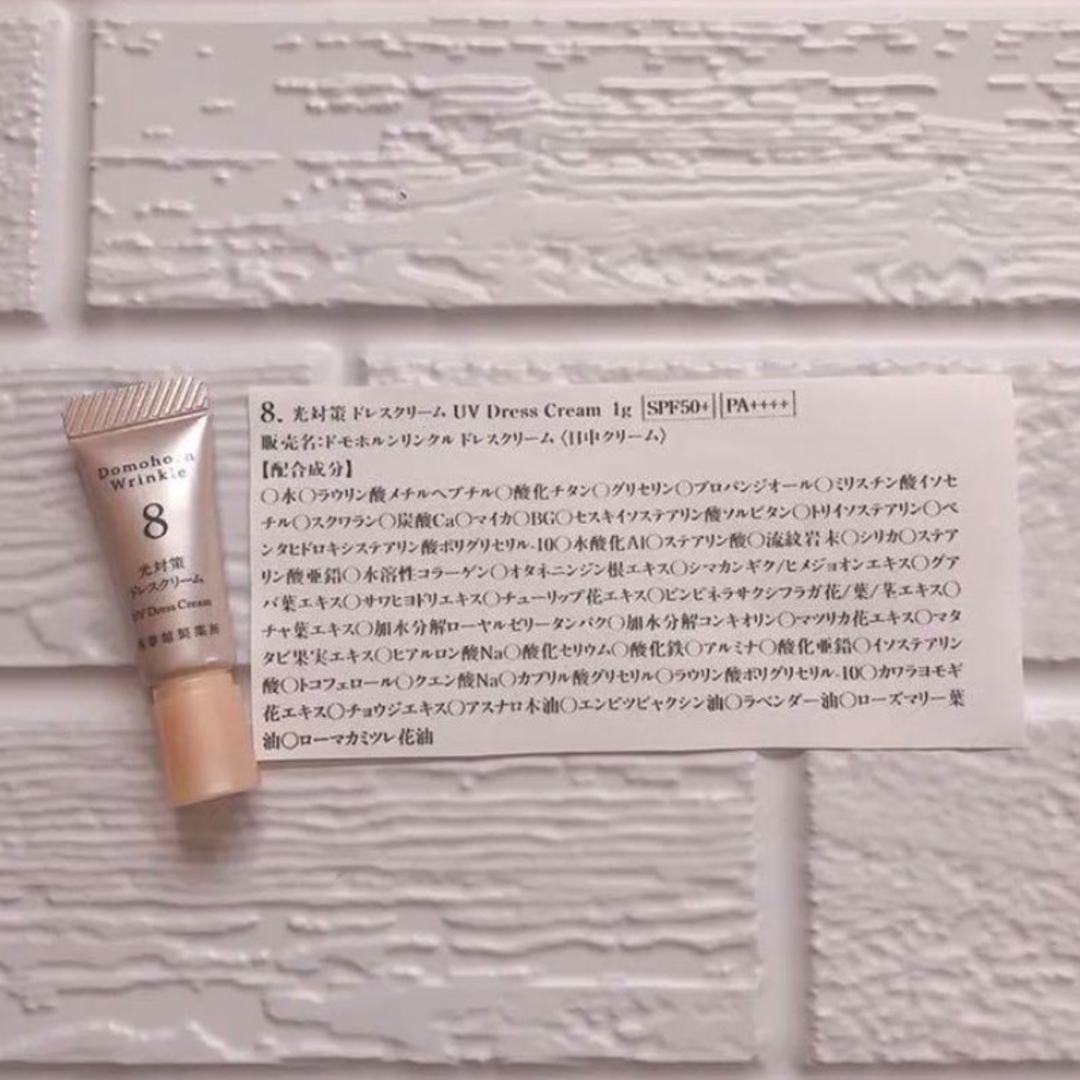 Domohorn
Wrinkle
8
光対策
ドレスクリーム
UV Dress Cream
8. 光対策 ドレスクリーム UV Dress Cream 1g SPF50+ PA++++
販売名:ドモホルンリンクル ドレスクリーム〈日中クリーム〉
【配合成分】
○水○ラウリン酸メチルヘプチル○酸化チタン○グリセリン○プロパンジオール○ミリスチン酸イソセ
チル○スクワラン○炭酸Ca○マイカ○BG○セスキイソステアリン酸ソルビタン○トリイソステアリン○ペ
ンタヒドロキシステアリン酸ポリグリセリル-10○水酸化Al○ステアリン酸○流紋岩末○シリカ○ステア
リン酸亜鉛○水溶性コラーゲン○オタネニンジン根エキス○シマカンギク/ヒメジョオンエキス○グア
バ葉エキス○サワヒヨドリエキス○チューリップ花エキス○ピンピネラサクシフラガ花/葉/茎エキス○
チャ葉エキス○加水分解ローヤルゼリータンパク○加水分解コンキオリン○マツリカ花エキス○マタ
タビ果実エキス○ヒアルロン酸Na○酸化セリウム○酸化鉄○アルミナ○酸化亜鉛○イソステアリン
酸○トコフェロール○クエン酸Na○カプリル酸グリセリル○ラウリン酸ポリグリセリル-10○カワラヨモギ
花エキス○チョウジエキス○アスナロ木油○エンピツビャクシン油○ラベンダー油○ローズマリー葉
油○ローマカミツレ花油